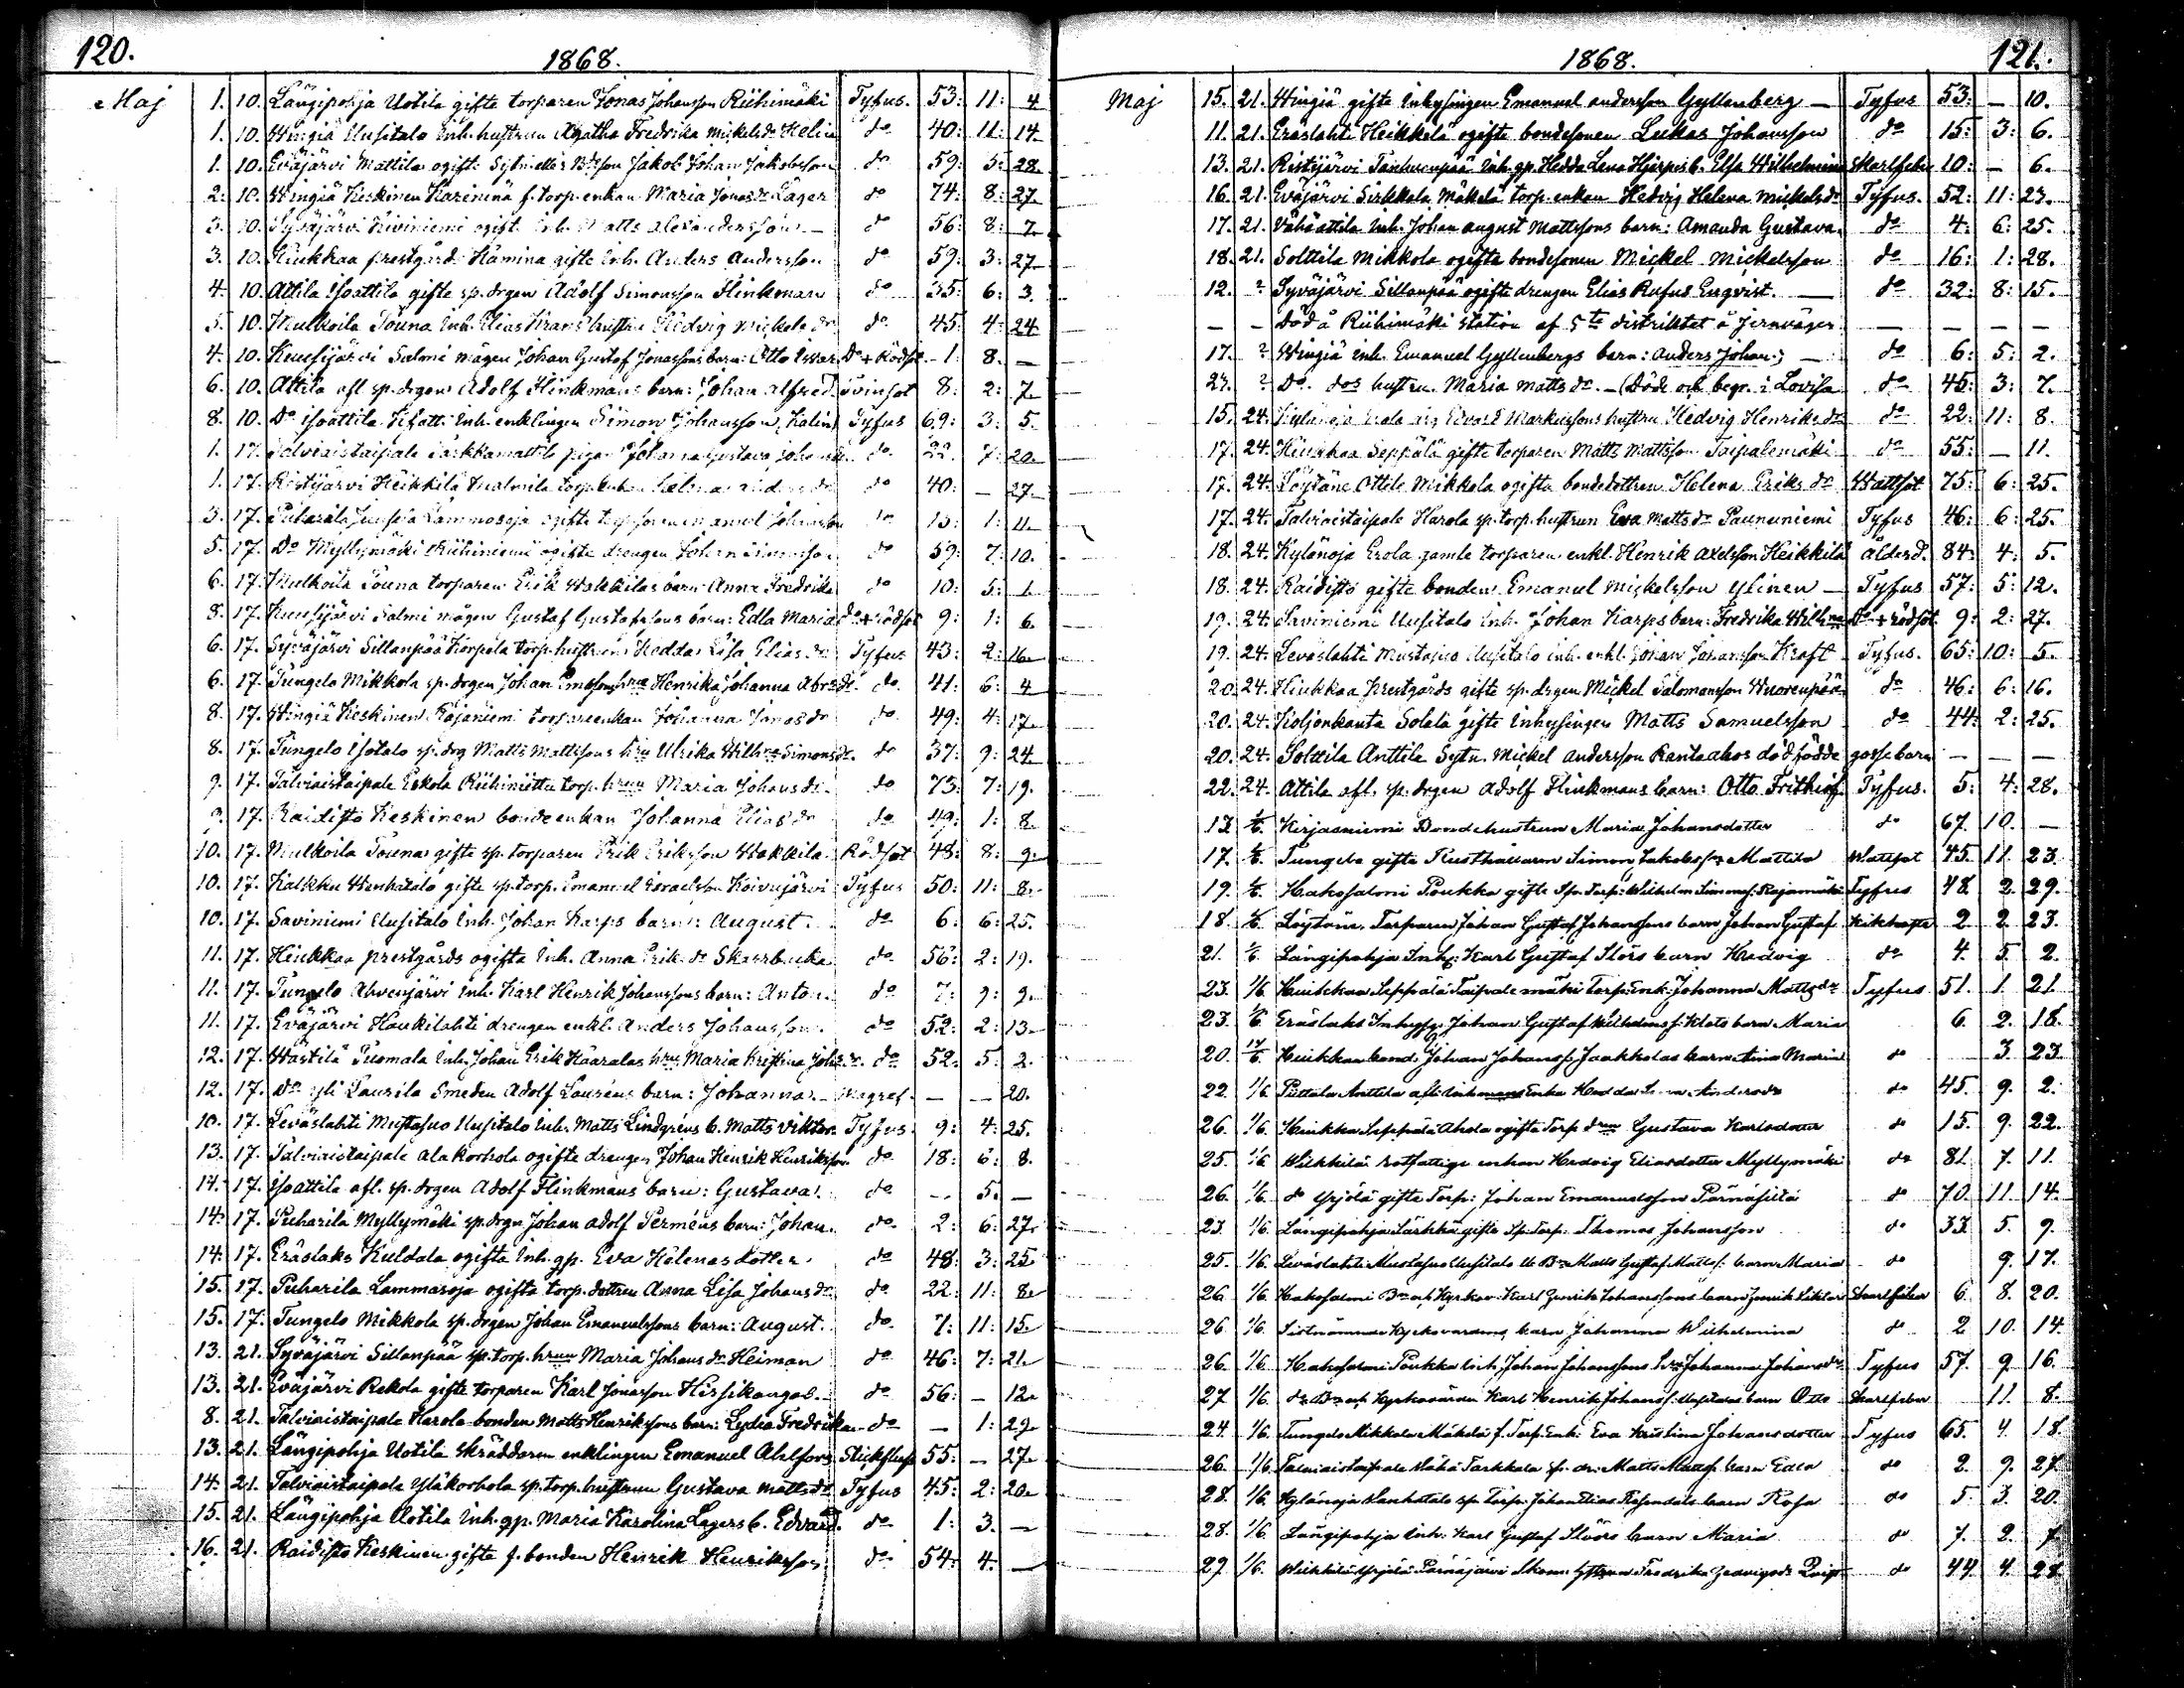 120.
1868.
Maj 1. 10. Längipohja Uotila gifte torparen Jonas Johansson Riihimäki Tyfus. 53: 11: 4
1. 10. Wingiä Uusitalo Inh. hustrun Agatha Fredrika Mickelsdr Helin do 40: 11: 14
1. 10. Eväjärvi Mattila ogifte Sytn Bdeson Jakob Johan Jakobsson do 59: 5: 28.
2. 10. Wingiä Keskinen Kareninä f. torp. enkan Maria Jonasdr Lager do 74: 8: 27
3. 10. Syväjärvi Kiviniemi ogift Inh. Matts Alexandersson do 56: 8: 7
3. 10. Kiukkaa prestgård Hamina gifte Inh. Anders Andersson do 59: 3: 27
4. 10. Attila Isoattila gifte sp. drgen Adolf Simonsson Flinkman do 35: 6: 3.
5. 10. Mulkoila Touna Inh. Elias Krans hustru Hedvig Mickelsdr do 45: 4: 24
4. 10. Kuusijärvi Salmi mågen Johan Gustaf Jonassons barn: Otto Iwar Do + Rödsot – 1: 8. –
6. 10. Attila afl. sp. drgen Adolf Flinkmans barn: Johan Alfred tvinsot 8: 2: 7
8. 10. Do Isoattila Inh. enklingen Simon Johansson (Kalin) Tyfus 69: 3: 5.
1. 17. Talviaistaipale Tarkkamattila pigan Johanna Gustava do 22. 7: 20.
1. 17. Ristijärvi Heikkilä do 40: – 27
3. 17. Puharila Lammasoja ogifte torp. sonen Johansson do 15: 1: 11
5. 17. Do Myllymäki Riihiniemi ogifte drengen Johan Simonsson do 59: 7: 10.
6. 17. Mulkoila Touna torparen Erik Wakkilas barn: Anna Fredrika do 10: 5: 1
8. 17. Kuusijärvi Salmi mågen Gustaf Gustafssons barn: Edla Maria Do + rödsot 9: 1: 6.
6. 17. Syväjärvi Sillanpää Korpela torp. hustrun Hedda Lisa Eliasdr Tyfus 43: 2: 16
6. 17. Tungelo Mikkola sp. drgen Johan hru Henrika Johanna do 41: 6: 4
8. 17. Wingiä Keskinen Rajaniemi torpareenkan Johanna Jonasdr do 49: 4: 17
8. 17. Tungelo Isotalo sp. drg Matts Mattssons hru Ulrika Wilhna Simonsdr. do 37: 9: 24
9. 17. Talviaistaipale Eskola Riihiniittu torp. hrun Maria Johansdr do 73: 7: 19.
9. 17. Raidisto Keskinen bondeenkan Johanna Eliasdr do 49: 1: 8
10. 17. Mulkoila Touna gifte sp. torparen Erik Eriksson Wakkila Rödsot 48: 8: 9.
10. 17. Kalkku Wanhatalo gifte sp. torp. Emanuel Israelsson Koivujärvi Tyfus 50: 11: 8.
10. 17. Saviniemi Uusitalo Inh. Johan Karps barn: August. do 6: 6: 25.
11. 17. Kiukkaa prestgårds ogifta Inh. Anna Eriksdr Skarrbacka do 56: 2: 19.
11. 17. Tungelo Ahvenjärvi Inh. Karl Henrik Johanssons barn: Anton. do 7: 9: 9.
11. 17. Eväjärvi Haukilahti drengen enkl. Anders Johansson do 52: 2: 13
12. 17. Wästilä Tuomala Inh. Johan Erik Kaaralas hru Maria Kristina do 52. 5: 2.
12. 17. Do yli Laurila Smeden Adolf Lauréns barn: Johanna – – – 20.
10. 17. Leväslahti Mustasuo Uusitalo Inh. Matts Lindgréns b. Matts Viktor Tyfus 9: 4: 25.
13. 17. Talviaistaipale ala Korhola ogifte drengen Johan Henrik Henriksson do 18: 6: 8.
17. 17. Isoattila afl. sp. drgen Adolf Flinkmans barn: Gustava. do – 5. –
14. 17. Puharila Myllymäki sp. drgn Johan Adolf Perméns barn: Johan. do 2: 6: 27
14. 17. Eräslaks Kuldala ogifta Inh. qp. Eva Helenasdotter do 48: 3: 25
15. 17. Puharila Lammasoja ogifta torp. dottren Anna Lisa Johansdr do 22: 11: 8
15. 17. Tungelo Mikkola sp. drgen Johan Emanuelssons barn: August. do 7: 11: 15
13. 21. Syväjärvi Sillanpää sp. torp. hrun Maria Johansdr Heiman do 46: 7: 21
13. 21. Eväjärvi Rekola gifte torparen Karl Jonasson Hirsikangas do 56: – 12
8. 21. Talviaistaipale Harola bonden Matts Henrikssons barn: Lydia Fredrika do – 1: 29
13. 21. Längipohja Uotila Skräddaren enklingen Emanuel Ahlfors Stickfluss 55: – 27
14. 21. Talviaistaipale Yläkorhola sp. torp. hustrun Gustava Mattsdr Tyfus 45: 2: 20
15. 21. Längipohja Uotila Inh. qp. Maria Karolina Lagers b. Edvard. do 1: 3. –
16. 21. Raidisto Keskinen gifte f. bonden Henrik Henriksson do 54: 4. –
1868.
121.
Maj 15. 21. Wingiä gifte Inhysingen Emanuel Andersson Gyllenberg – Tyfus 53: – 10.
11. 21. Eräslahti Heikkilä ogifte bondesonen Lukas Johansson do 15: 3: 6.
13. 21. Ristijärvi Tanhuanpää Inh. qp. Hedda Lena Hjerpes b. Elsa Wilhelmina Skarlfeber 10: – 6.
16. 21. Eväjärvi Sirkkala Mäkelä torp. enkan Hedvig Helena Mickelsdr Tyfus. 52: 11: 23.
17. 21. Vähäattila Inh. Johan August Mattssons barn: Amanda Gustava do 4: 6: 25.
18. 21. Solttila Mikkola ogifte bondesonen Mickel Mickelsson do 16: 1: 28.
12. ? Syväjärvi Sillanpää ogifte drengen Elias Rufus Enqvist. – do 32: 8: 15.
– – Död å Riihimäki station af 5te distriktet å jernväger – – – –
17. ? Wingiä Inh. Emanuel Gyllenbergs barn: Anders Johan } – do 6: 5: 2.
27. ? Do. dos hustru Maria Mattsdr. – (Döde och begr. i Lovisa do 45: 3: 7.
15. 24. Kylänoja Edvard Markussons hustru Hedvig Henriksdr do 22: 11: 8.
17. 24. Kiukkaa Seppälä gifte torparen Matts Mattsson Taipalemäki do 55: – 11.
17. 24. Löytäne Ottila Mikkola ogifta bondedottren Helena Eriksdr Wattsot 75: 6: 25.
17. 24. Talviaistaipale Harola sp. torp. hustrun Eva Mattsdr Paununiemi Tyfus 46: 6: 25.
18. 24. Kylänoja Erola gamle torparen enkl. Henrik Axelsson Heikkilä ålderd. 84: 4: 5.
18. 24. Raidisto gifte bonden Emanuel Mickelsson Ylinen – Tyfus 57: 5: 12.
19. 24. Saviniemi Uusitalo Inh. Johan Karps barn: Fredrika Wilhna Do + rödsot 9: 2: 27.
19. 24. Leväslahti Mustasuo Uusitalo inh. enkl. Johan Johansson Kraft Tyfus. 65: 10: 5.
20. 24. Kiukkaa Prestgårds gifte sp. drgen Mickel Salomonsson Wuorenpää do 46: 6: 16.
20. 24. Koljonkanta Solala gifte Inhysingen Matts Samuelsson do 44: 2: 25.
20. 24. Solttila Anttila Sytn. Mickel Andersson Rantaahos dödfödde gossebarn – – –
22. 24. Attila afl. sp. drgen Adolf Flinkmans barn: Otto Frithiof. Tyfus. 5: 4: 28.
13. 1/6. Kirjasniemi Bondehustrun Maria Johansdotter do 67. 10. –
17. 1/6. Tungelo gifte Rusthållaren Simon Jakobss. Mattila Wattsot 45. 11. 23.
19. 1/6. Hakosalmi Poukka gifte Sp. Torp: Wilhelm Simonss: Rajamäki Tyfus 48. 2. 29.
18. 1/6. Löytäne Torparen Johan Gustaf Johanssons barn Johan Gustaf Kikhosta 2. 2. 23.
21. 1/6. Längipohja Inh: Karl Gustaf Störs barn Hedvig do 4. 5. 2.
23. 1/6. Kiukkaa Seppälä Taipalemäki Torp: Enk: Johanna Mattsdr Tyfus 51. 1. 21.
23. 1/6. Eräslaks Inhysg: Johan Gustaf Wilhelms s: Klots barn Maria 6. 2. 18.
20. 1/6. Kiukkaa bond: Johan Johanss: Jaakkolas barn Anna Maria do 3. 23.
22. 1/6. Puttola Anttila Enka Hedda Andersdr do 45. 9. 2.
26. 1/6. Kiukkaa Seppälä Ahola ogifta Torp drn Gustava Karlsdotter do 15. 9. 22.
25. 1/6. Wilkkilä rotfattiga enkan Hedvig Eliasdotter Myllymäki do 81. 7. 11.
26. 1/6. do Yrjölä gifte Torp: Johan Emanuelsson Pärnäjärvi do 70. 11. 14.
23. 1/6. Längipohja Särkkä gifte Sp. Torp: Thomas Johansson do 33. 5. 9.
25. 1/6. Leväslahti Mustasuo Uusitalo Matts Gustaf Mattss: barn Maria do 9. 17.
26. 1/6. Hakosalmi Karl Henrik Johanssons barn Henrik Viktor Skarlfeber 6. 8. 20.
26. 1/6. Sistnämnde Kyrkovärdens barn Johanna Wilhelmina do 2. 10. 14.
26. 1/6. Hakosalmi Poukka Inh: Johan Johanssons Johanna Johansdr Tyfus 57. 9. 16.
27. 1/6. Kyrkovärden Karl Henrik Johanss: barn Otto Skarlfeber 11. 8.
24. 1/6. Tungelo Mikkola Mäkelä f. Torp. Enk: Eva Kristina Johansdotter Tyfus 65. 4. 18.
26. 1/6. Talviaistaipale Vähä Tarkkala sp. dr: Matts Mattss: barn Edla do 2. 9. 27.
28. 1/6. Kylänoja Wanhatalo sp. Torp: Johan Elias barn Rosa do 5. 3. 20.
28. 1/6. Längipohja Inh: Karl Gustaf Störs barn Maria do 7. 2. 7.
29. 1/6. Wilkkilä Yrjölä Pärnäjärvi Fredrika do 44. 4. 28.